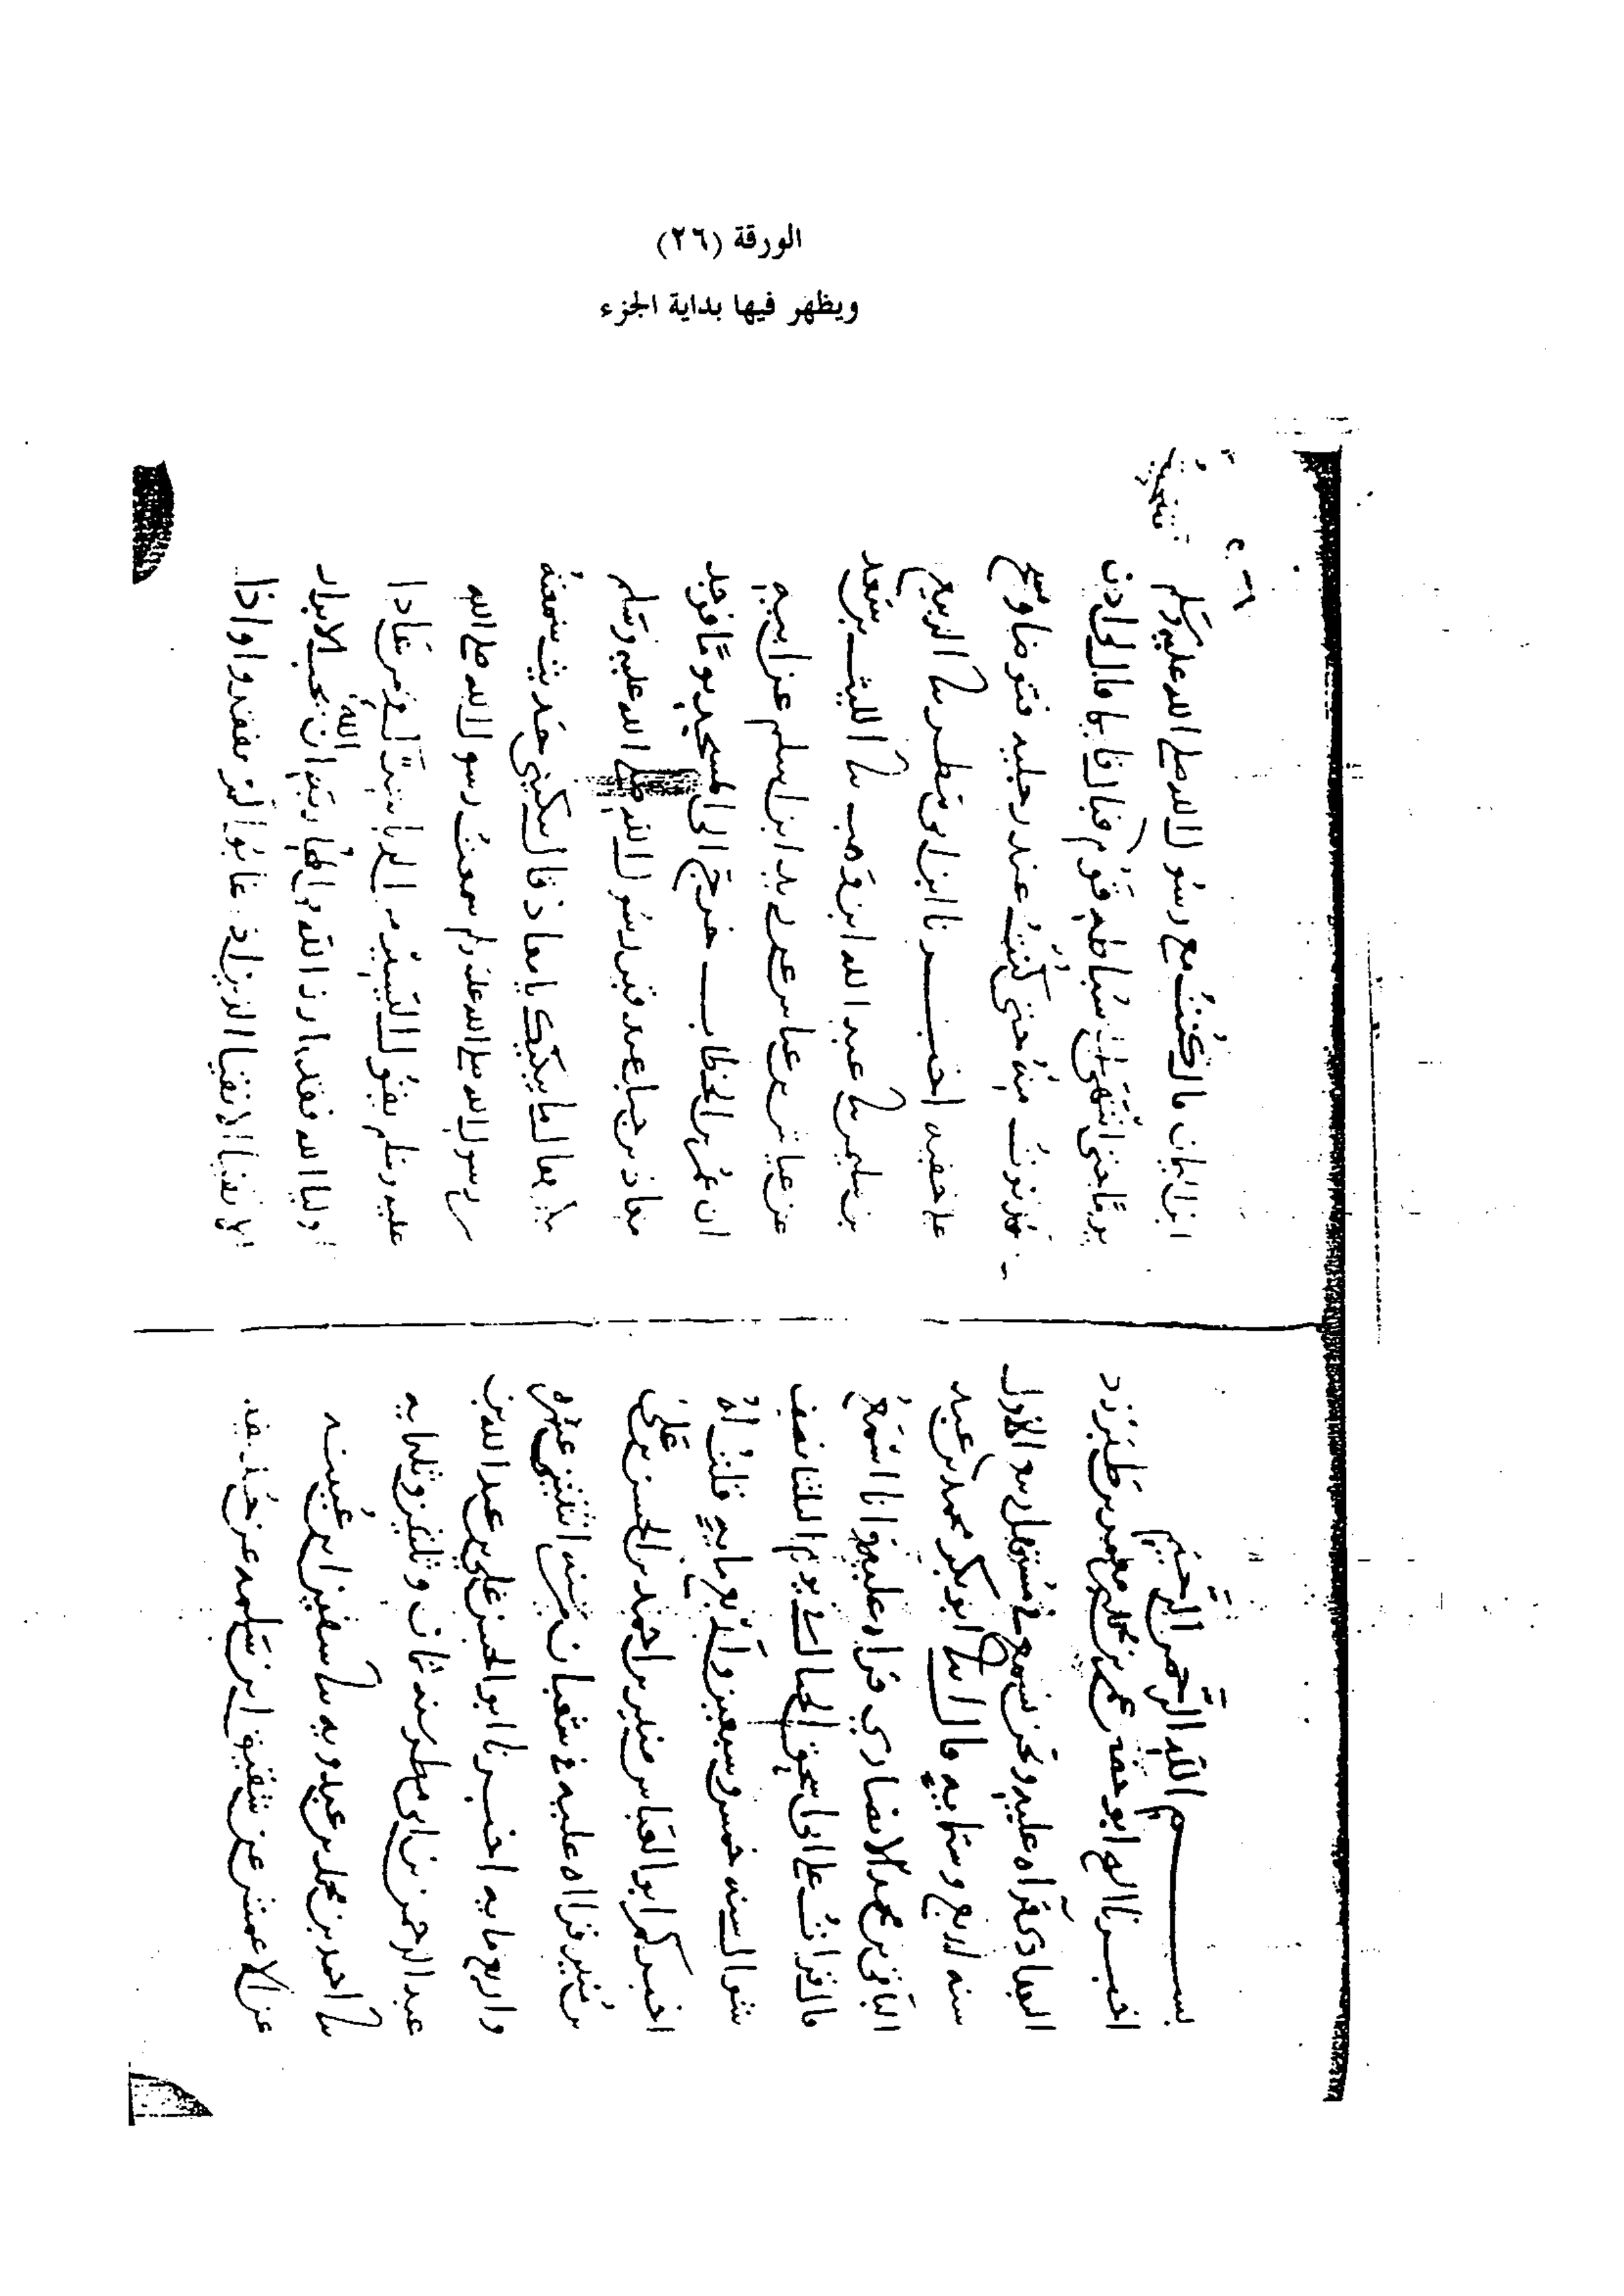 الورقة (٢٦)
ويظهر فيها بداية الجزء
بسم الله الرحمن الرحيم
اخبرنا ابو حفص عمر بن محمد بن معمر بن طبرزد
البغدادى قراه عليه ونحن نسمع فى مستهل ربيع الاول
سنه اربع وستمايه قال انبا ابو بكر محمد بن عبد
الباقى بن محمد الانصارى قراه عليه وانا اسمع
قال قرات على ابى اسحق الحبال فى يوم الثلثا نصف
شوال سنه خمس وسبعين واربع مايه قلت له
اخبركم ابو العباس منير بن احمد بن الحسن بن على
بن منير قراه عليه فى شعبان من سنه اثنتين عشره
واربع مايه اخبرنا ابو الحسن على بن عبد الله بن
عبد الرحمن بن ابى مطر سنه ثمان وثلثين وثلثمايه
نا احمد بن محمد بن عبدويه نا سفين ابن عيينه
عن الاعمش عن شقيق ابن سلمه عن حذيفه
ابن اليمان قال كنت مع رسول الله صلى الله عليه وسلم
يوما حتى انتهى الى سباطه قوم فبال قايما قال ادن
فدنوت منه حتى كنت عند رجليه فتوضا ومسح
على خفيه اخبرنا ابن ابى مطر نا الربيع
بن سليمن نا عبد الله ابن وهب نا الليث بن سعد
عن عياش بن عباس عن زيد ابن اسلم عن ابيه
ان عمر بن الخطاب خرج الى المسجد يوما فوجد
معاذ بن جبل عند قبر رسول الله صلى الله عليه وسلم
يبكى فقال ما يبكيك يا معاذ قال يبكينى حديث سمعته
من رسول الله صلى الله عليه وسلم سمعت رسول الله صلى الله
عليه وسلم يقول اليسير من الريا شرك ومن عادا
اوليا الله فقد بارز الله بالمحاربه ان الله يحب الابرار
الاتقيا الاخفيا الذين اذا غابوا لم يفقدوا واذا